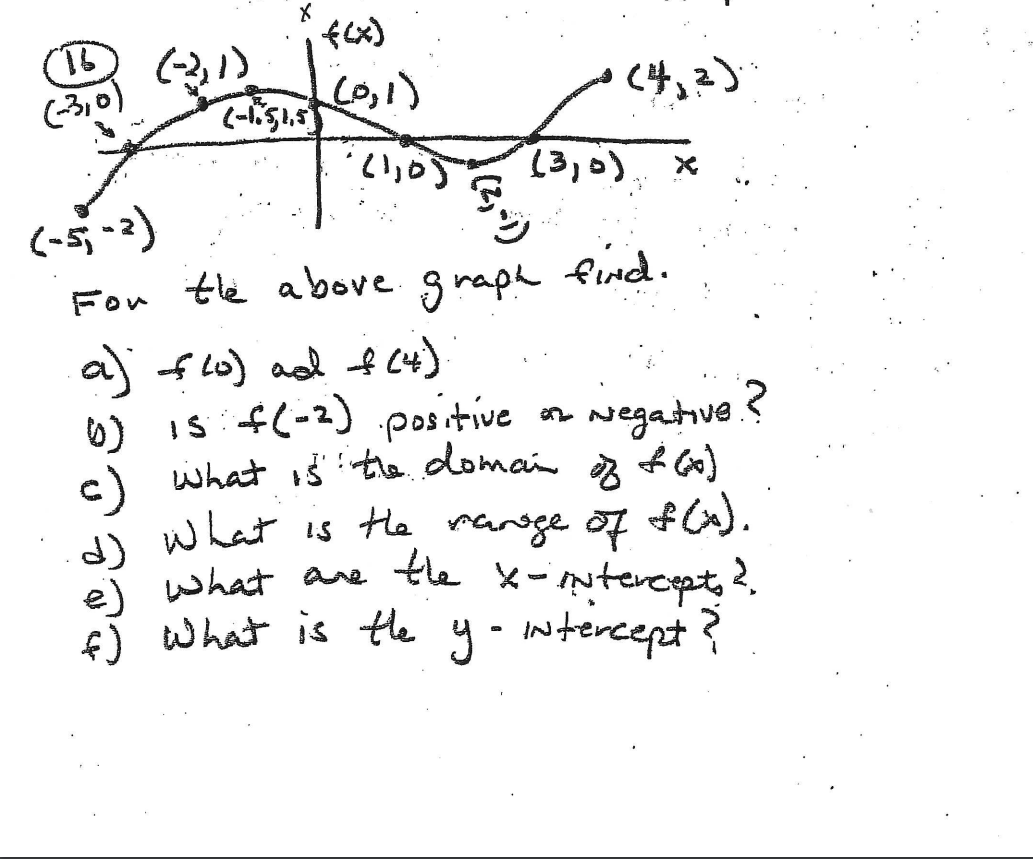 x
f(x)
16
(-2,1)
(-3,0)
(-1.5,1.5)
(0,1)
(4,2)
(1,0)
(3,0)
x
(-5,-2)
For the above graph find.
a) f(0) ad f(4)
b) is f(-2) positive or Negative?
c) What is the domain of f(x)
d) What is the range of f(x).
e) What are the x-intercepts?.
f) What is the y-intercept?